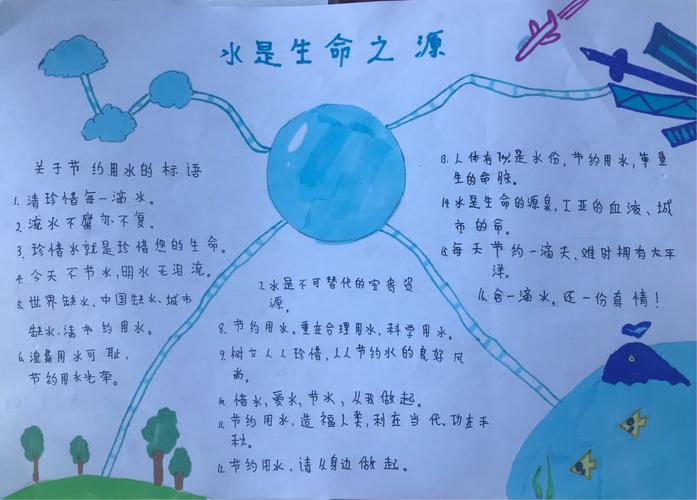 水是生命之源
关于节约用水的标语
1. 请珍惜每一滴水。
2. 流水不腐亦不复。
3. 珍惜水就是珍惜您的生命。
4. 今天不节水,明水无泪流。
5. 世界缺水、中国缺水、城市
缺水、请节约用水。
6. 浪费用水可耻,
节约用水光荣。
7. 水是不可替代的宝贵资
源。
8. 节约用水,重在合理用水,科学用水。
9. 树立人人珍惜,人人节约水的良好风
尚。
10. 惜水,爱水、节水,从我做起。
11. 节约用水,造福人类,利在当代、功在千
秋。
12. 节约用水、请从身边做起。
13. 人体有 是水份,节约用水,掌量
生的命脉。
14. 水是生命的源泉,工业的血液、城
市的命。
15. 每天节约一滴天、难时拥有太平
洋。
16. 含一滴水,还一份真情!